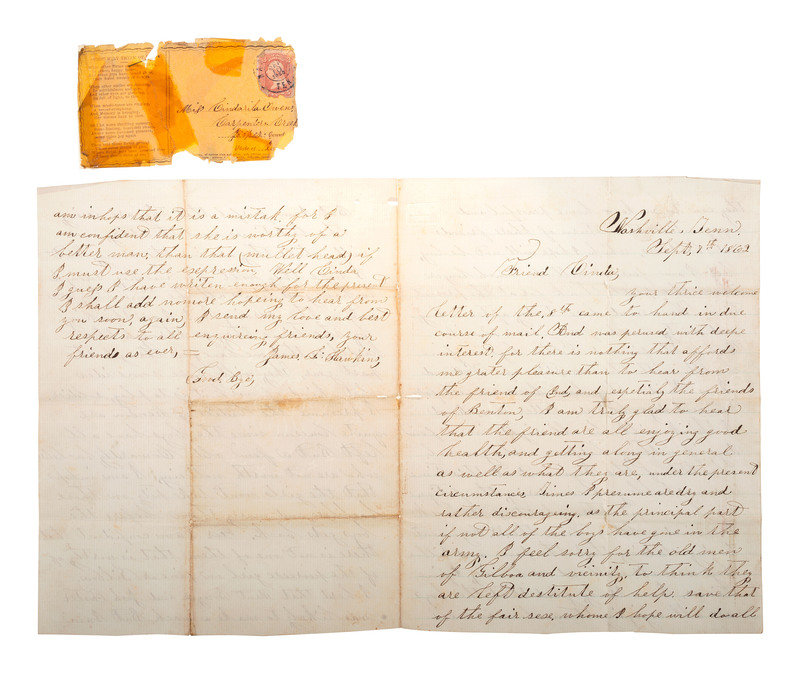 Miss Cindarila Owens
Carpenters Creek
Nashville, Tenn,
Sept, 7th 1862
Friend Cinda,
your thrice welcome
letter of the, 8th came to hand in due
course of mail. And was perused with deepe
interest, for there is notting that affords
me grater pleasure than to hear from
the friend of Ind, and espetialy the friends
of Benton, I am truly glad to hear
that the friend are all enjoying good
health, and getting along in general
as well as what they are, under the present
circumstances, Times I presume are dry and
rather discourageing, as the principal part
if not all of the boys have gone in the
army. I feel sorry for the old men
of Gilboa and vicinity, to think they
are left destitute of help save that
of the fair sexe, whome I hope will do all
am in hops that it is a mistak. for I
am confident that she is worthy of a
better man, than that (mullet head) if
I must use the expression, Well Cinda
I guess I have writen enough for the presant
I shall add no more hopeing to hear from
you soon, again, I send my love and best
respects to all enquireing friends, your
friends as ever,
James, Hawkins,